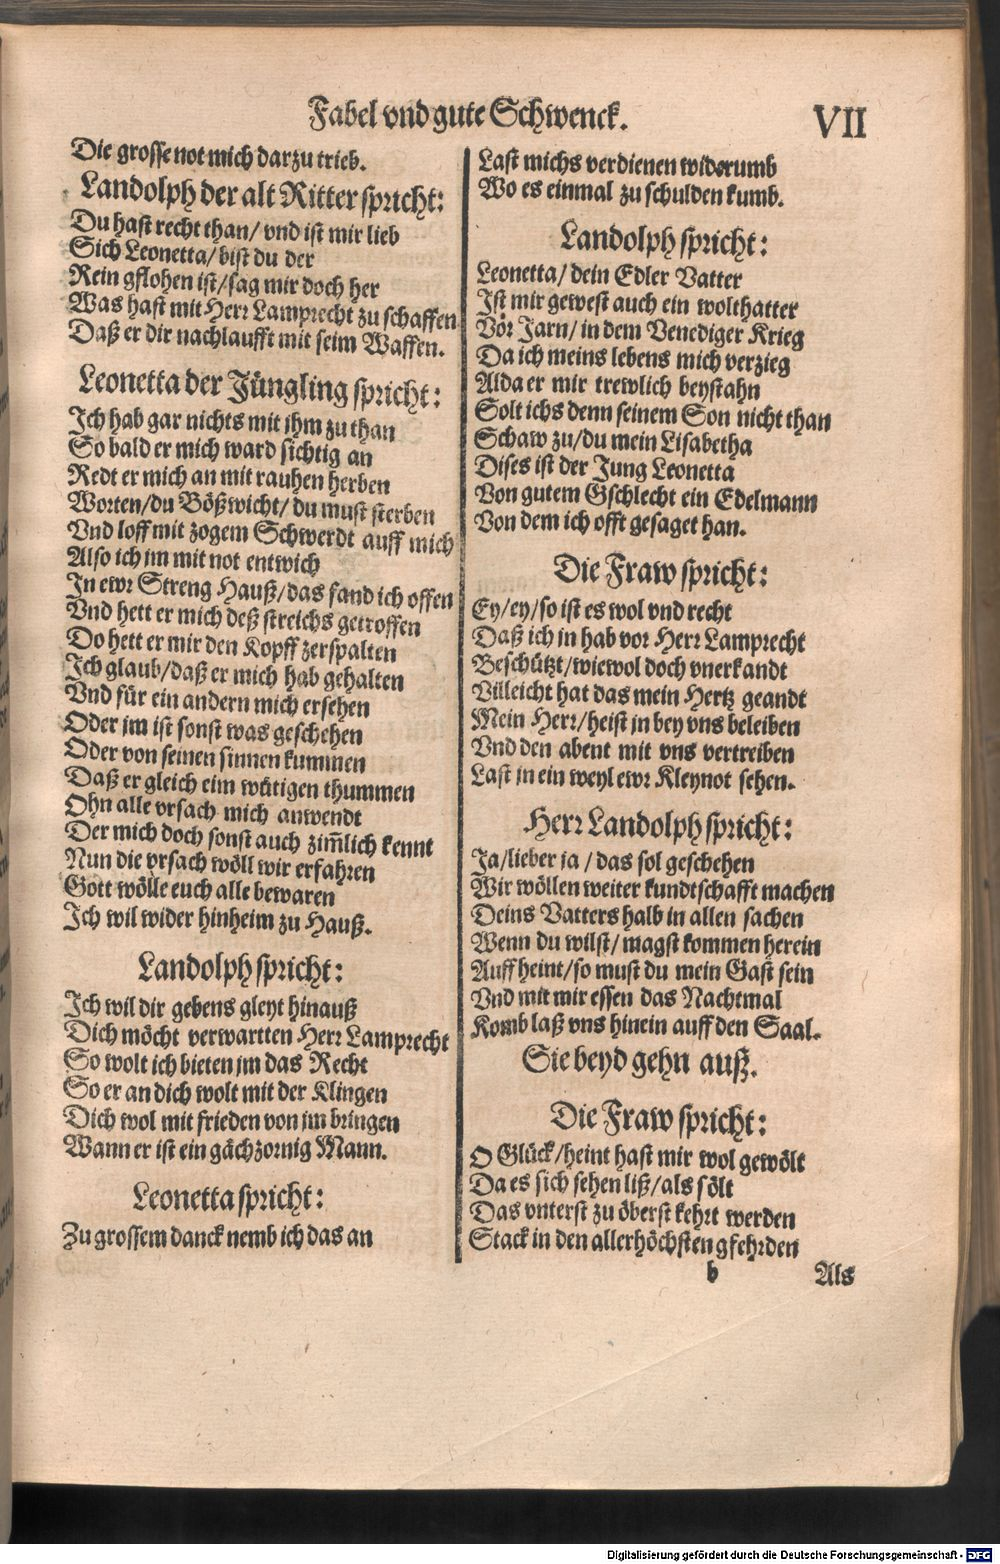 Fabel vnd gute Schwenck. VII
Die grosse not mich darzu trieb.
Landolph der alt Ritter spricht:
Du hast recht than/ vnd ist mir lieb
Sich Leonetta/ bist du der
Rein gflohen ist/ sag mir doch her
Was hast mit Herr Lamprecht zu schaffen
Daß er dir nachlaufft mit seim Waffen.
Leonetta der Jüngling spricht:
Ich hab gar nichts mit ihm zu than
So bald er mich ward sichtig an
Redt er mich an mit rauhen herben
Worten/ du Bößwicht/ du must sterben
Vnd loff mit zogem Schwerdt auff mich
Also ich im mit not entwich
In ewr Streng Hauß/ das fand ich offen
Vnd hett er mich deß streichs getroffen
Do hett er mir den Kopff zerspalten
Ich glaub/ daß er mich hab gehalten
Vnd für ein andern mich ersehen
Oder im ist sonst was geschehen
Oder von seinen sinnen kummen
Daß er gleich eim wütigen thummen
Ohn alle vrsach mich anwendt
Der mich doch sonst auch zim̃lich kennt
Nun die vrsach wöll wir erfahren
Gott wölle euch alle bewaren
Ich wil wider hinheim zu Hauß.
Landolph spricht:
Ich wil dir gebens gleyt hinauß
Dich möcht verwartten Herr Lamprecht
So wolt ich bieten im das Recht
So er an dich wolt mit der Klingen
Dich wol mit frieden von im bringen
Wann er ist ein gächzornig Mann.
Leonetta spricht:
Zu grossem danck nemb ich das an
Last michs verdienen widerumb
Wo es einmal zu schulden kumb.
Landolph spricht:
Leonetta/ dein Edler Vatter
Ist mir gewest auch ein wolthatter
Vor Jarn/ in dem Venediger Krieg
Da ich meins lebens mich verzieg
Alda er mir trewlich beystahn
Solt ichs denn seinem Son nicht than
Schaw zu/ du mein Lisabetha
Dises ist der Jung Leonetta
Von gutem Gschlecht ein Edelmann
Von dem ich offt gesaget han.
Die Fraw spricht:
Ey/ ey/ so ist es wol vnd recht
Daß ich in hab vor Herr Lamprecht
Beschützt/ wiewol doch vnerkandt
Villeicht hat das mein Hertz geandt
Mein Herr/ heist in bey vns beleiben
Vnd den abent mit vns vertreiben
Last in ein weyl ewr Kleynot sehen.
Herr Landolph spricht:
Ja/ lieber ja / das sol geschehen
Wir wöllen weiter kundtschafft machen
Deins Vatters halb in allen sachen
Wenn du wilst/ magst kommen herein
Auff heint/ so must du mein Gast sein
Vnd mit mir essen das Nachtmal
Komb laß vns hinein auff den Saal.
Sie beyd gehn auß.
Die Fraw spricht:
O Glück/ heint hast mir wol gewölt
Da es sich sehen liß/ als sölt
Das vnterst zu öberst kehrt werden
Stack in den allerhöchsten gfehrden
b Als
Digitalisierung gefördert durch die Deutsche Forschungsgemeinschaft - DFG